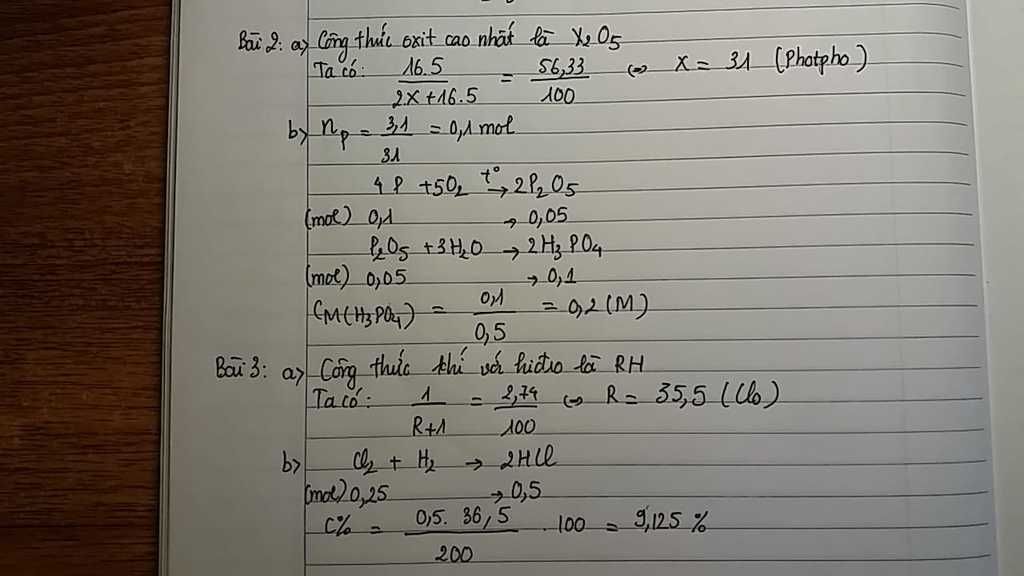 Bài 2: a) Công thức oxit cao nhất là X₂O₅
Ta có: 16.5 / 2X+16.5 = 56,33 / 100 ⇔ X = 31 (Photpho)
b) nₚ = 3,1 / 31 = 0,1 mol
4P + 5O₂ t°→ 2P₂O₅
(mol) 0,1 → 0,05
P₂O₅ + 3H₂O → 2H₃PO₄
(mol) 0,05 → 0,1
CM(H₃PO₄) = 0,1 / 0,5 = 0,2 (M)
Bài 3: a) Công thức khí với hiđro là RH
Ta có: 1 / R+1 = 2,74 / 100 ⇔ R = 35,5 (Clo)
b) Cl₂ + H₂ → 2HCl
(mol) 0,25 → 0,5
C% = 0,5. 36,5 / 200 . 100 = 9,125 %